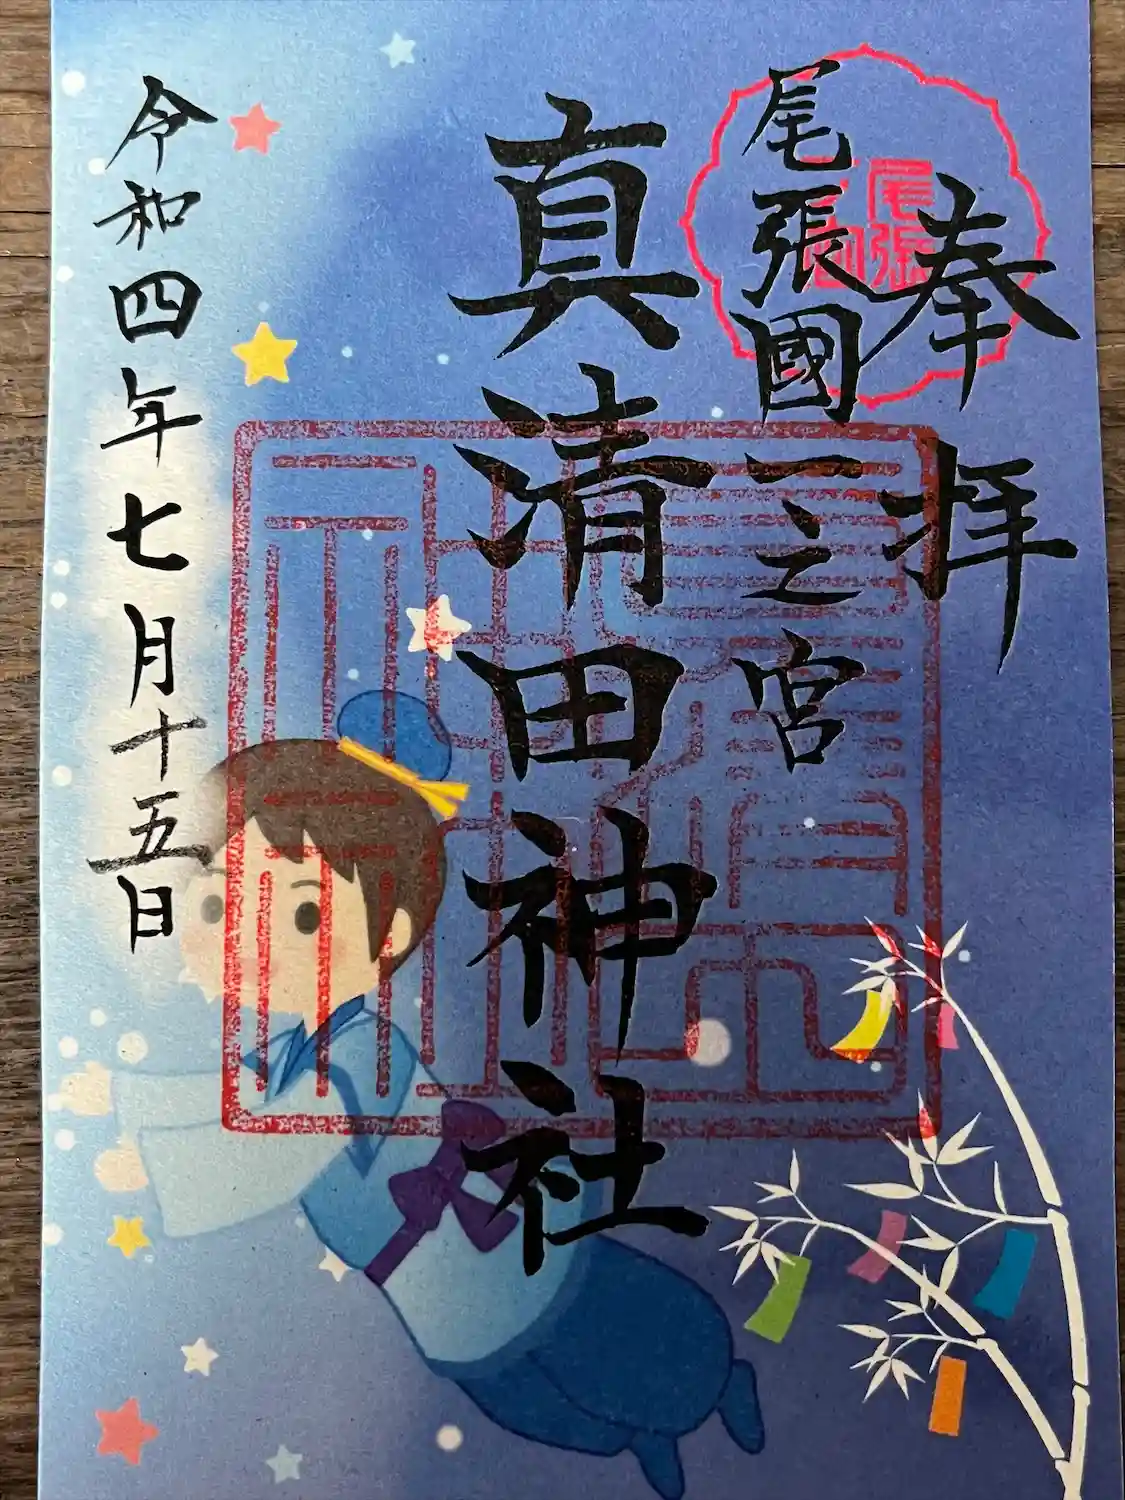 奉拝
尾張國一之宮
尾張
真清田神社
令和四年七月十五日